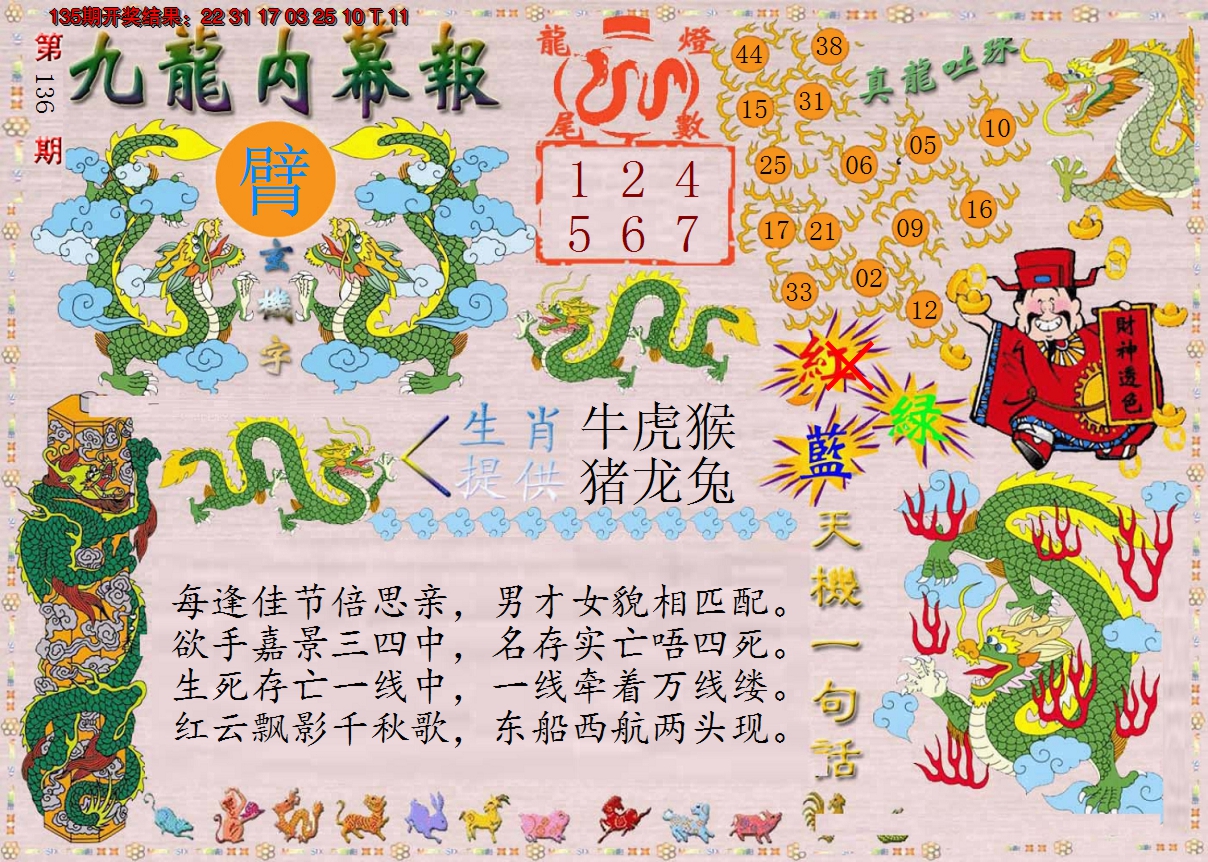 135期开奖结果：22 31 17 03 25 10 T 11
第136期
九龍内幕報
臂
玄機字
龍燈
尾數
1 2 4
5 6 7
真龍吐珠
44 38
15 31
25 06 05 10
17 21 09 16
33 02 12
財神透色
紅
綠
藍
生肖 牛虎猴
提供 猪龙兔
天機一句话
每逢佳节倍思亲，男才女貌相匹配。
欲手嘉景三四中，名存实亡唔四死。
生死存亡一线中，一线牵着万线缕。
红云飘影千秋歌，东船西航两头现。